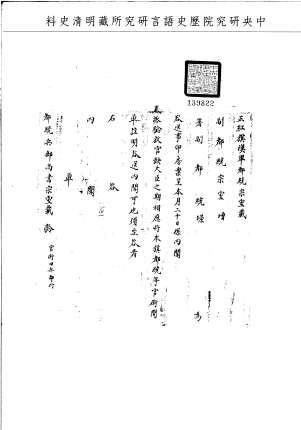 中央研究院歷史語言研究所藏明清史料
139822
正紅旗漢軍都統宗室載
副都統宗室增
署副都統 為
咨送事印房案呈本月二十日准內閣
驗放官缺大臣之期相應將本旗都統等官銜開
單註明咨送內閣可也須至咨者
右咨
內閣
單
都統兵部尚書宗室載齡